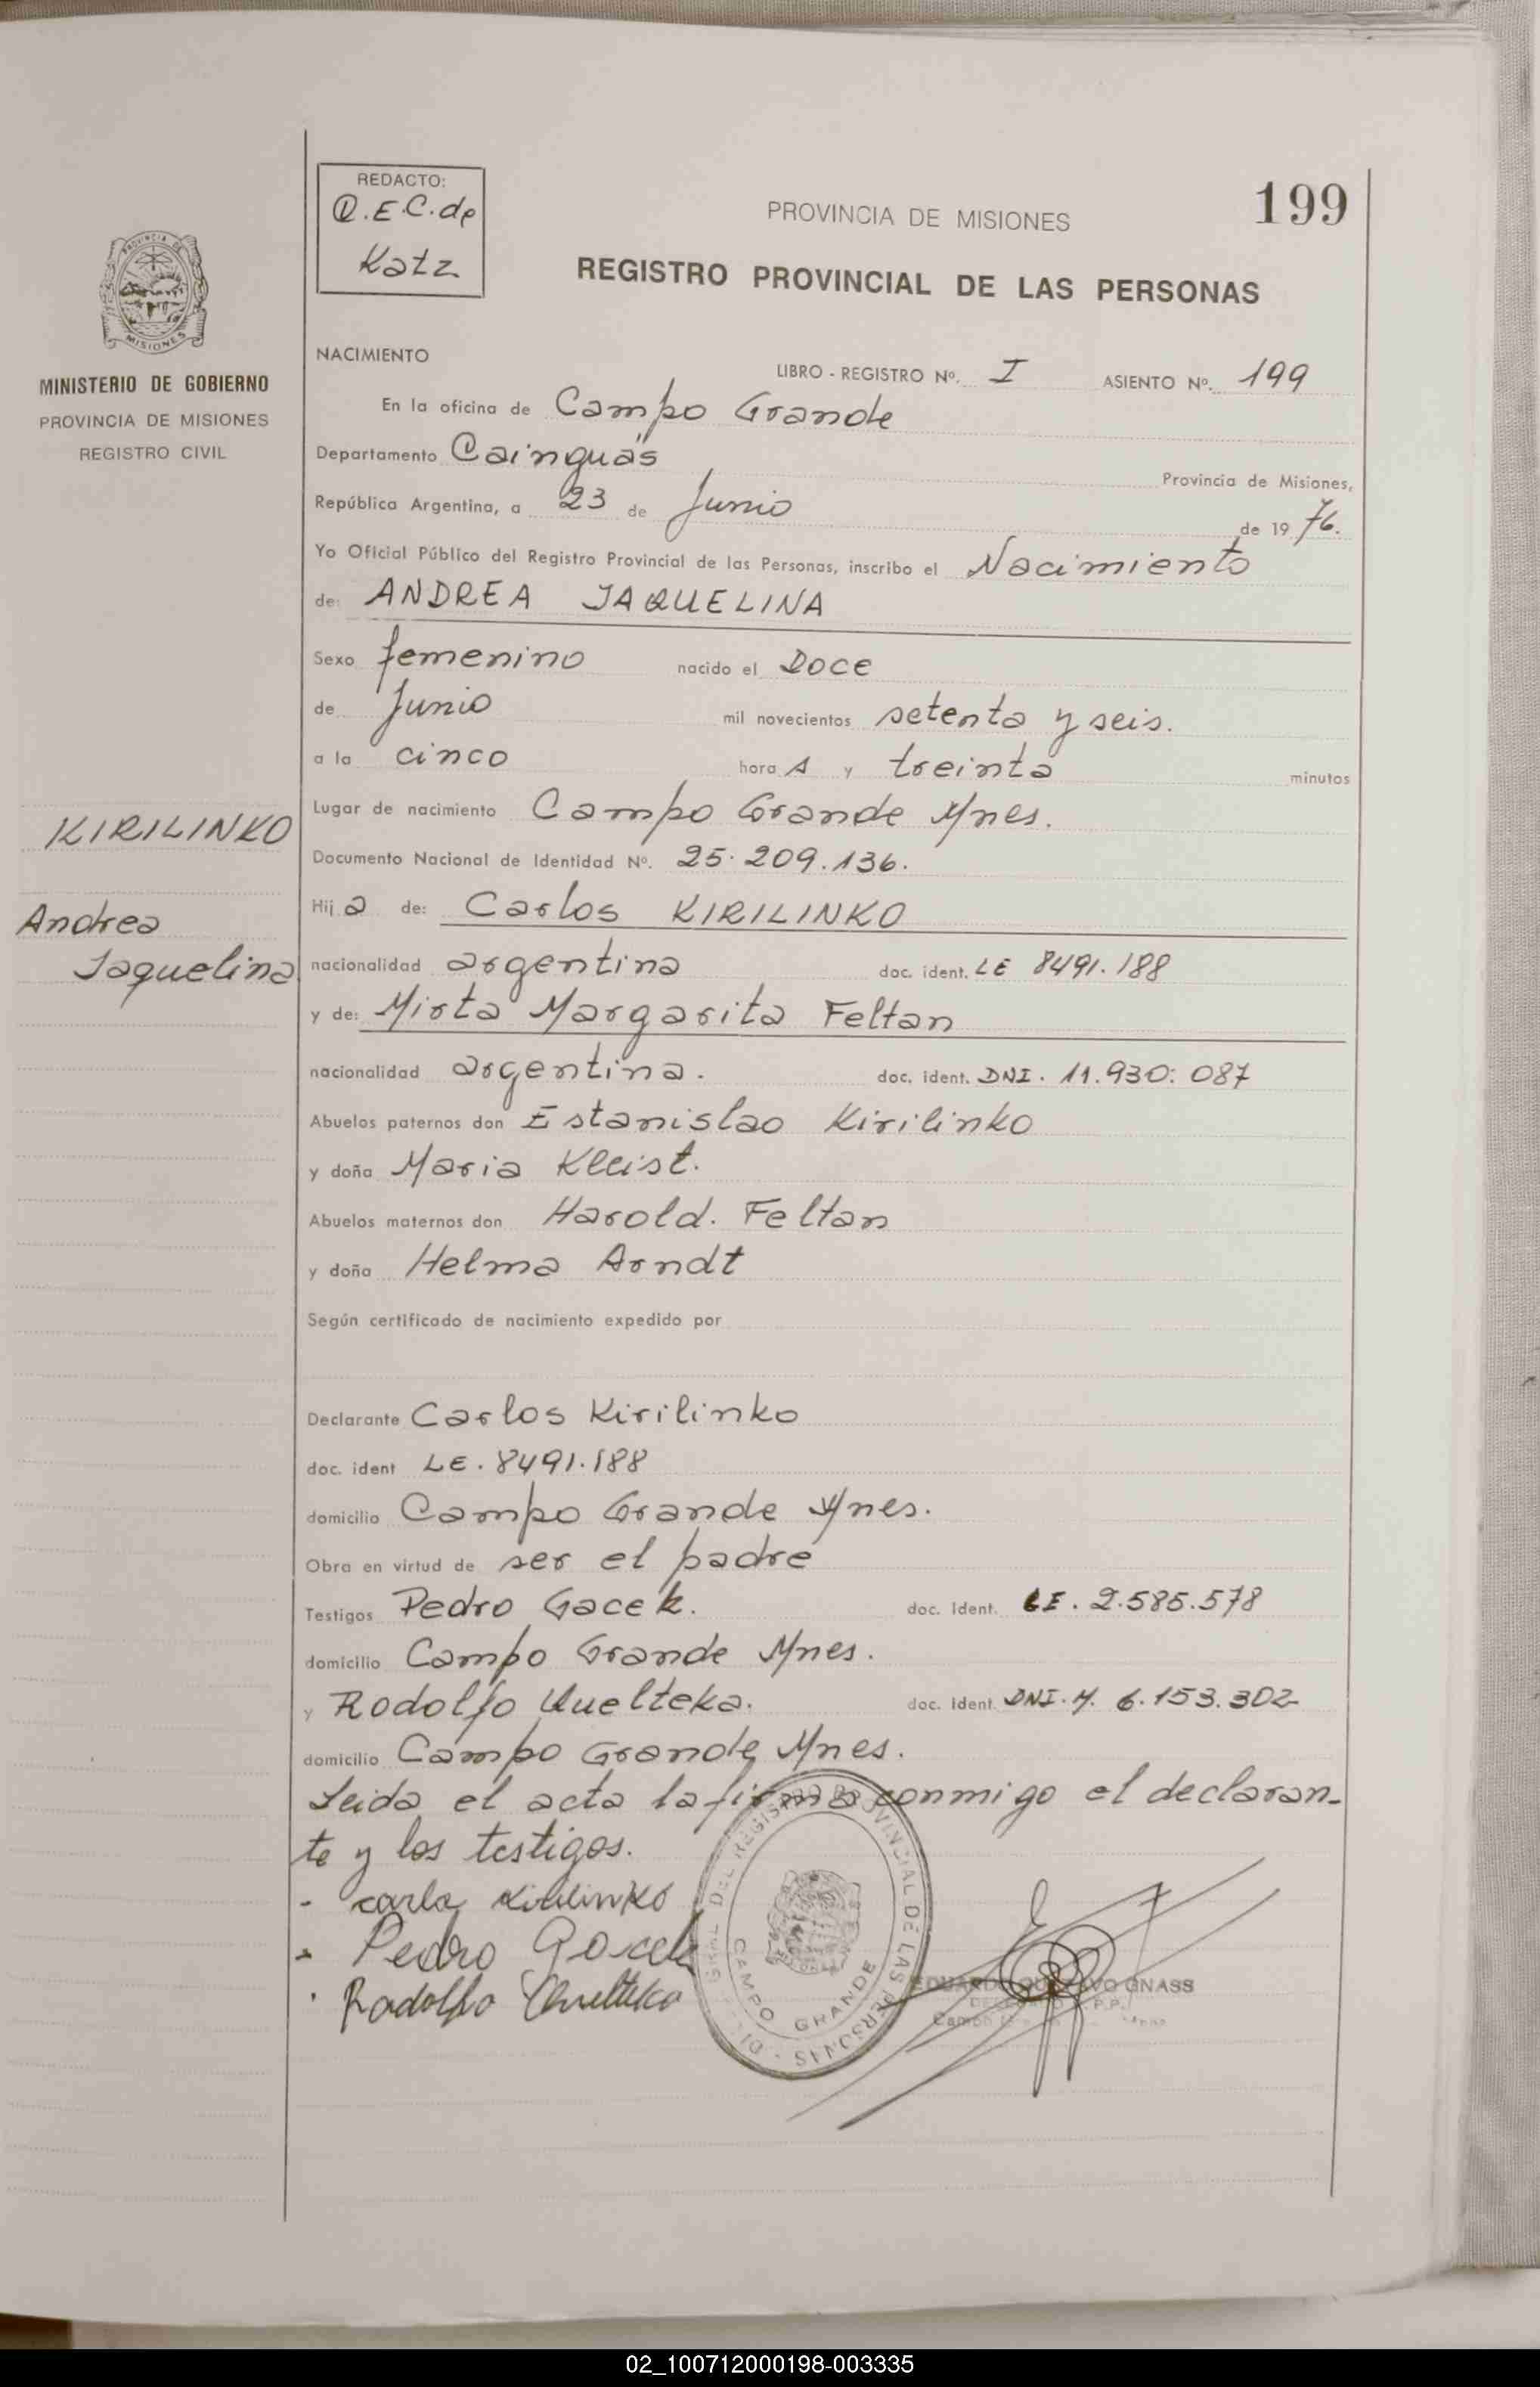 199
REDACTO:
Q.E.C.de
Katz
PROVINCIA DE MISIONES
REGISTRO PROVINCIAL DE LAS PERSONAS
PROVINCIA DE
MISIONES
MINISTERIO DE GOBIERNO
PROVINCIA DE MISIONES
REGISTRO CIVIL
NACIMIENTO
LIBRO - REGISTRO Nº. I ASIENTO Nº. 199
En la oficina de Campo Grande
Departamento Cainguás Provincia de Misiones,
República Argentina, a 23 de Junio de 1976.
Yo Oficial Público del Registro Provincial de las Personas, inscribo el Nacimiento
de: ANDREA JAQUELINA
Sexo femenino nacido el Doce
de Junio mil novecientos setenta y seis.
a la cinco hora A y treinta minutos
Lugar de nacimiento Campo Grande Mnes.
KIRILINKO
Documento Nacional de Identidad Nº. 25.209.136.
Hij a de: Carlos KIRILINKO
Andrea
Jaquelina
nacionalidad argentina doc. ident. LE 8491.188
y de: Mirta Margarita Feltan
nacionalidad argentina. doc. ident. DNI. 11.930.087
Abuelos paternos don Estanislao Kirilinko
y doña Maria Kleist.
Abuelos maternos don Harold. Feltan
y doña Helma Arndt
Según certificado de nacimiento expedido por
Declarante Carlos Kirilinko
doc. ident LE. 8491.188
domicilio Campo Grande Mnes.
Obra en virtud de ser el padre
Testigos Pedro Gacek. doc. Ident. LE. 2.585.578
domicilio Campo Grande Mnes.
y Rodolfo Uuelteka. doc. Ident. DNI. M. 6.153.302
domicilio Campo Grande Mnes.
Leida el acta la firma conmigo el declaran-
te y los testigos.
- carlo Kirilinko
- Pedro Gacek
DEL REGISTRO PROVINCIAL DE LAS PERSONAS
CAMPO GRANDE
EDUARDO GUSTAVO GNASS
Rodolfo
02_100712000198-003335